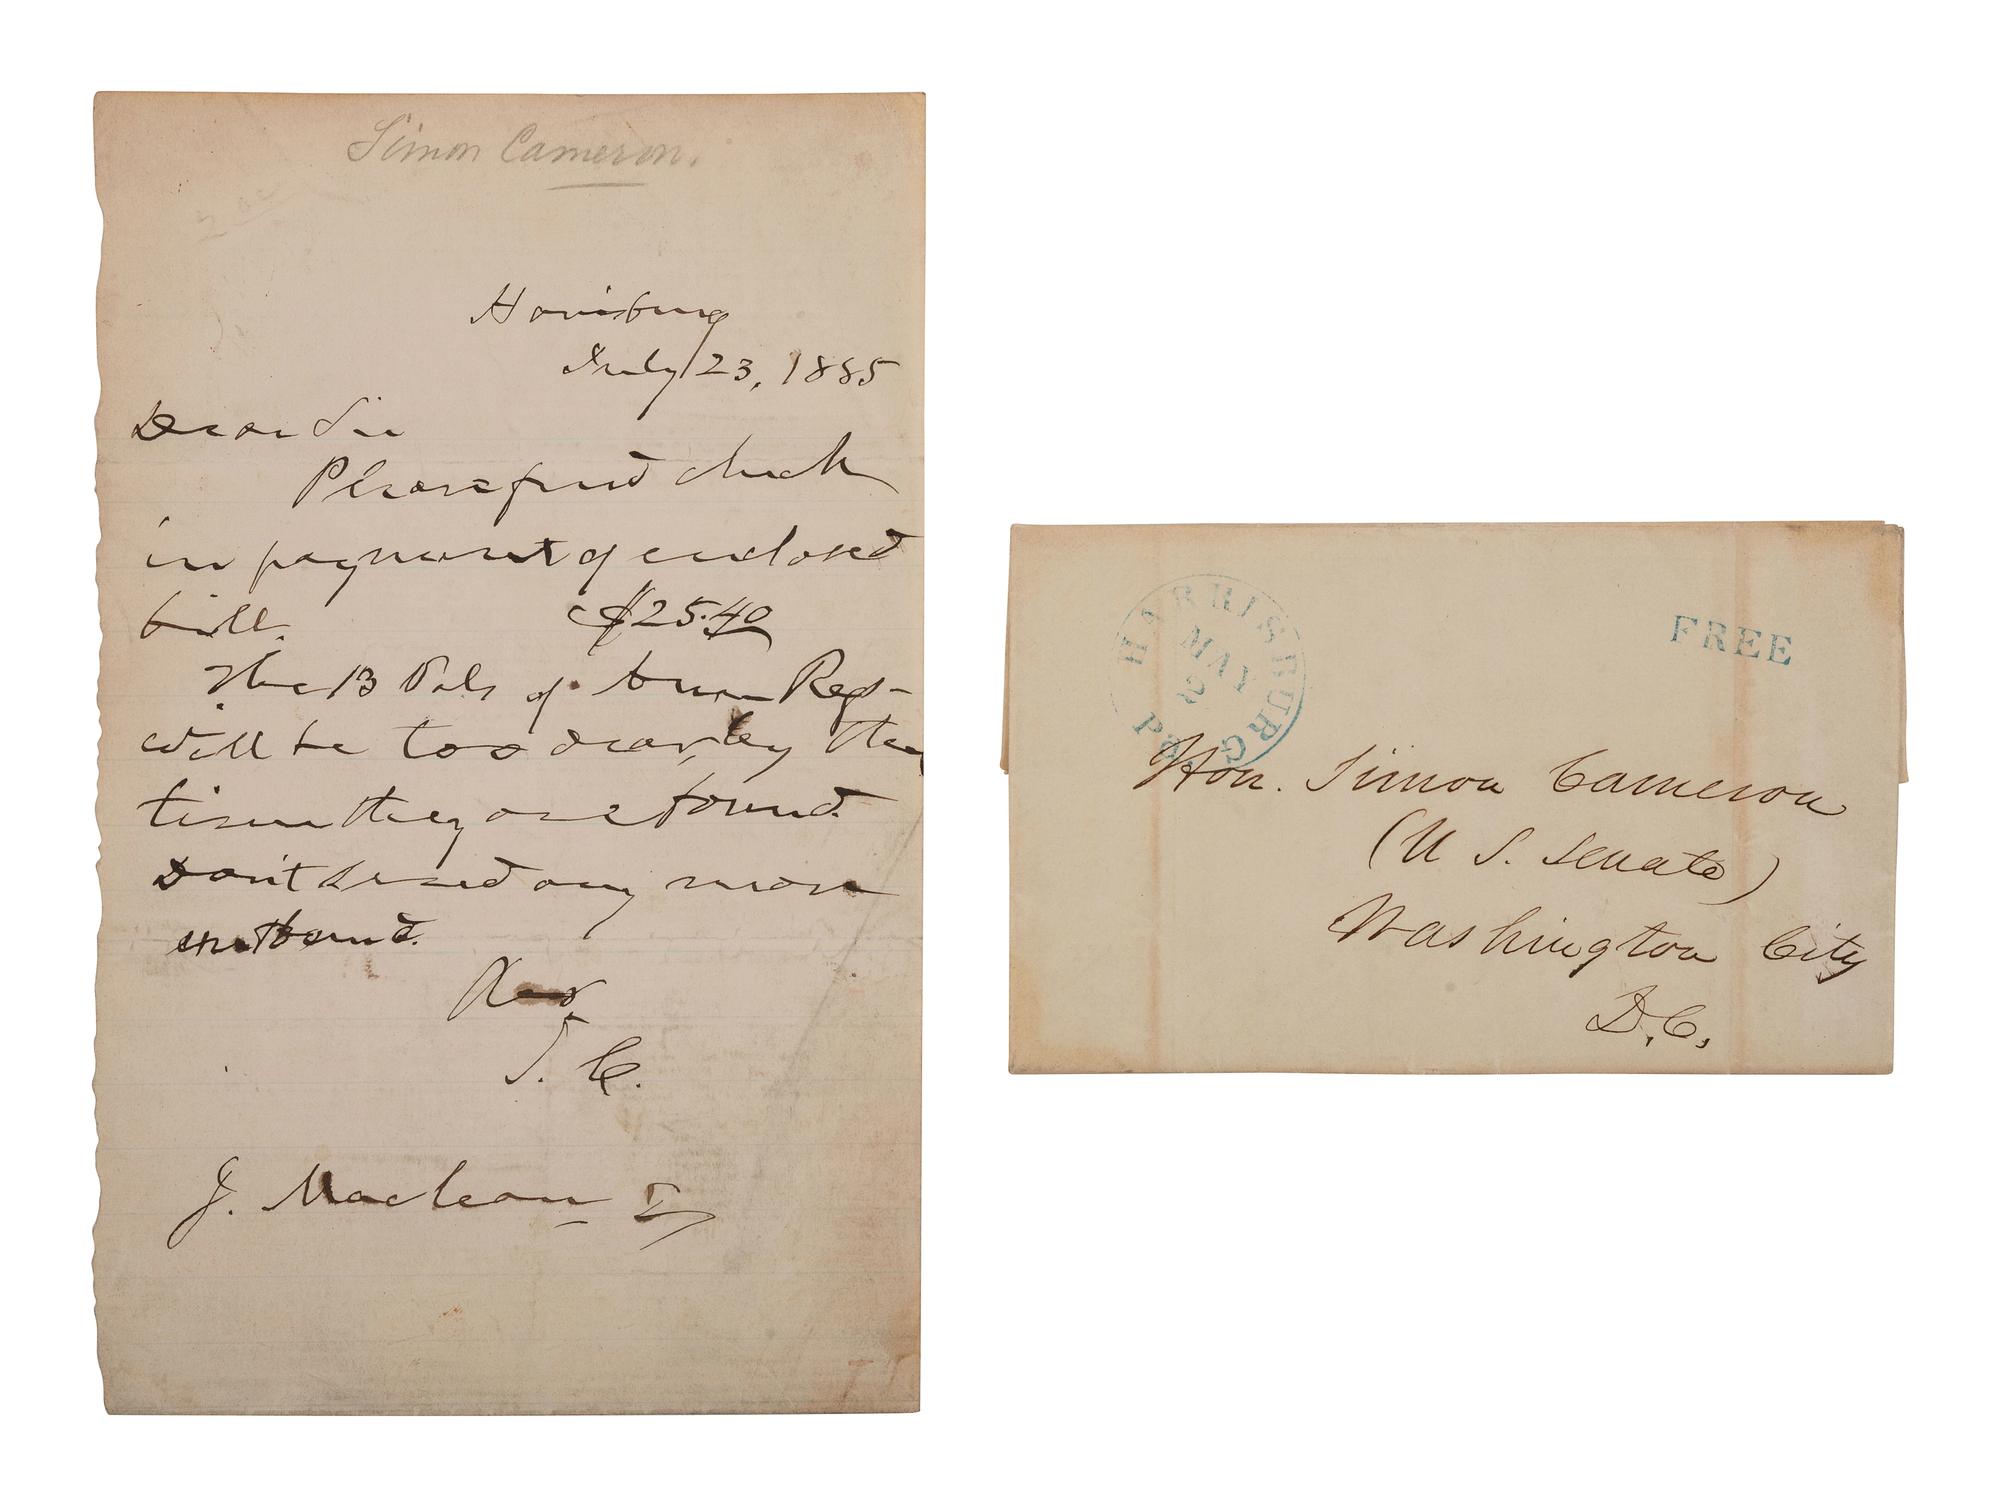 Simon Cameron.
Harrisburg
July 23, 1885
Dear Sir
Please find check
in payment of enclosed
bill. $25.40
The 13 Vols of Ann Reg-
will be too dear, by the
time they are bound.
Don't send any more
unbound.
S. C.
J. Maclean
HARRISBURG
MAY
2
Pa.
FREE
Hon. Simon Cameron
(U S. Senate)
Washington City
D.C.